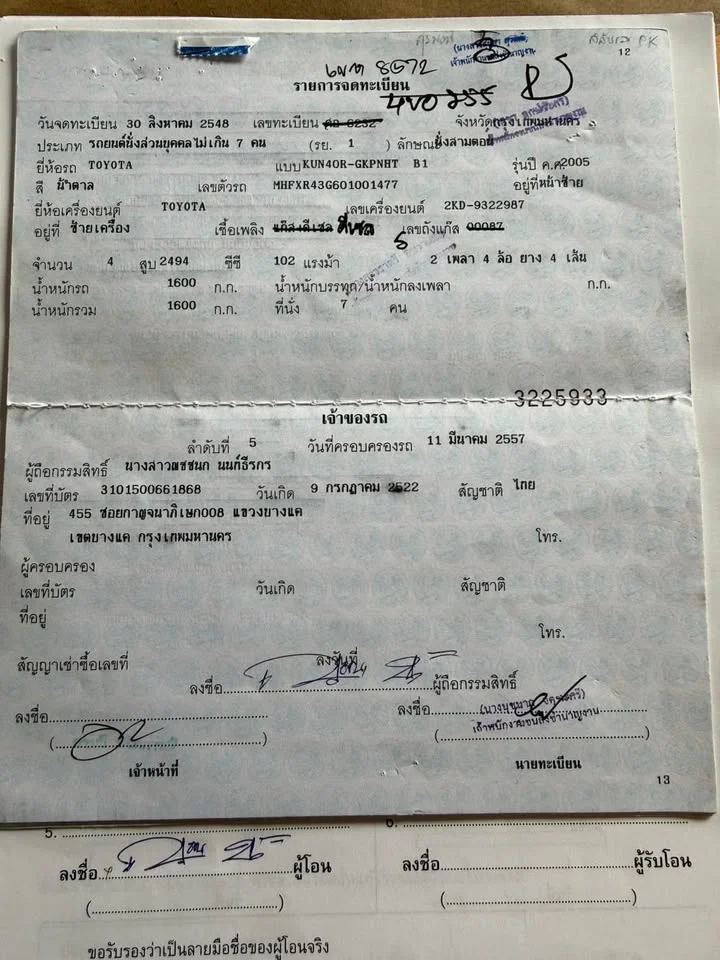 12
รายการจดทะเบียน
วันจดทะเบียน 30 สิงหาคม 2548 เลขทะเบียน จังหวัดกรุงเทพมหานคร
ประเภท รถยนต์นั่งส่วนบุคคลไม่เกิน 7 คน (รย. 1 ) ลักษณะ นั่งสามตอน
ยี่ห้อรถ TOYOTA แบบ KUN40R-GKPNHT B1 รุ่นปี ค.ศ. 2005
สี น้ำตาล เลขตัวรถ MHFXR43G601001477 อยู่ที่ หน้าซ้าย
ยี่ห้อเครื่องยนต์ TOYOTA เลขเครื่องยนต์ 2KD-9322987
อยู่ที่ ซ้ายเครื่อง เชื้อเพลิง แก๊ส-ดีเซล ดีเซล เลขถังแก๊ส 00087
จำนวน 4 สูบ 2494 ซีซี 102 แรงม้า 2 เพลา 4 ล้อ ยาง 4 เส้น
น้ำหนักรถ 1600 ก.ก. น้ำหนักบรรทุก/น้ำหนักลงเพลา ก.ก.
น้ำหนักรวม 1600 ก.ก. ที่นั่ง 7 คน
3225933
เจ้าของรถ
ลำดับที่ 5 วันที่ครอบครองรถ 11 มีนาคม 2557
ผู้ถือกรรมสิทธิ์ นางสาวณชชนก นนท์ธีรกร
เลขที่บัตร 3101500661868 วันเกิด 9 กรกฎาคม 2522 สัญชาติ ไทย
ที่อยู่ 455 ซอยกาญจนาภิเษก008 แขวงบางแค
เขตบางแค กรุงเทพมหานคร โทร.
ผู้ครอบครอง
เลขที่บัตร วันเกิด สัญชาติ
ที่อยู่
โทร.
สัญญาเช่าซื้อเลขที่ ลงวันที่
ลงชื่อ ผู้ถือกรรมสิทธิ์
ลงชื่อ ลงชื่อ
เจ้าพนักงานขนส่งชำนาญงาน
เจ้าหน้าที่ นายทะเบียน
13
5. 6.
ลงชื่อ ผู้โอน ลงชื่อ ผู้รับโอน
ขอรับรองว่าเป็นลายมือชื่อของผู้โอนจริง